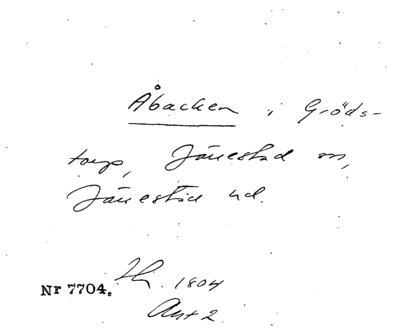 Åbacken i Gröds-
torp, Järestad sn,
Järestad hd.
1804
Nr 7704.
Akt 2